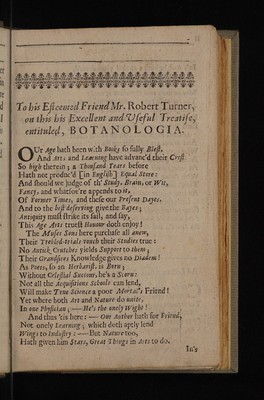 To his Esteemed Friend Mr. Robert Turner,
on this his Excellent and Useful Treatise,
entituled, BOTANOLOGIA.
OUr Age hath been with Books so fully Blest,
And Arts and Learning have advanc'd their Crest
So high therein; a Thousand Years before
Hath not produc'd [in English] Equal Store:
And should we judge of th' Study, Brain, or Wit,
Fancy, and whatsoe're appends to It,
Of Former Times, and these our Present Dayes,
And to the best deserving give the Bayes;
Antiquity must strike its sail, and say,
This Age Arts truest Honour doth enjoy!
The Muses Sons here purchase all anew,
Their Trebled-trials vouch their Studies true:
No Antick Crutches yields Support to them;
Their Grandsires Knowledge gives no Diadem!
As Poets, so an Herbarist is Born;
Without Celestial Succour, he's a Scorn:
Not all the Acquisitions Schools can lend,
Will make True Science a poor Mortal's Friend!
Yet where both Art and Nature do unite,
In one Physician; — He's the onely Wight!
And thus 'tis here: — One Author hath for Friend,
Not onely Learning; which doth aptly lend
Wings to Industry: — But Nature too,
Hath given him Stars, Great Things in Arts to do.
In's